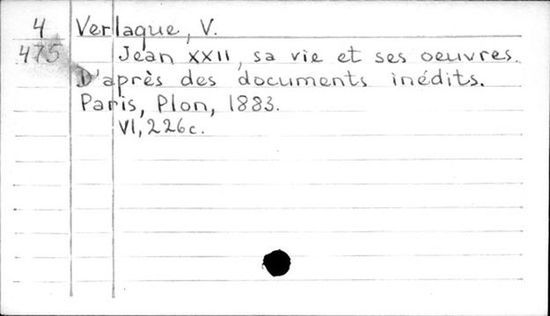 4 Verlaque, V.
475 Jean XXII, sa vie et ses oeuvres.
D'après des documents inédits.
Paris, Plon, 1883.
VI, 226c.